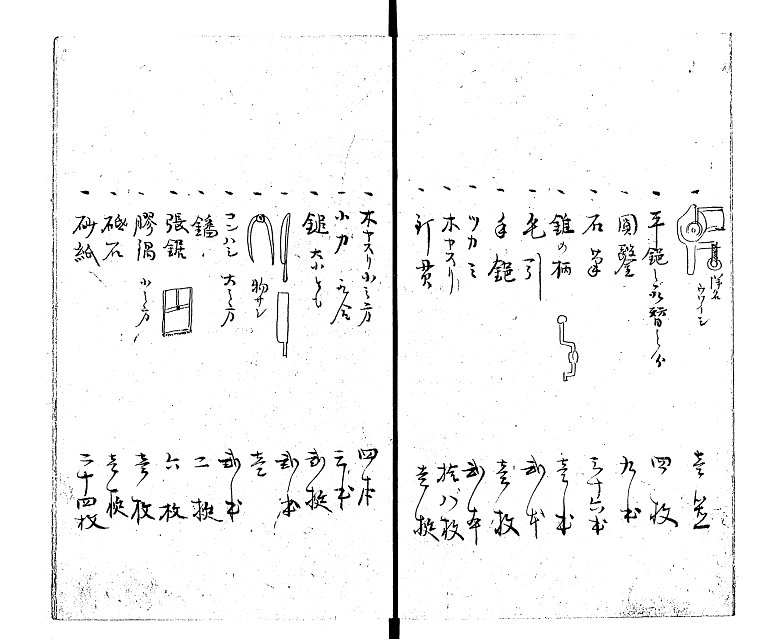 一 洋名 ウワイシ 壱
一 平鉋し 替し分 四枚
一 圓鑿 九本
一 石筆 三十六本
一 錐の柄 壱本
一 毛引 弐本
一 手鋸 壱枚
一 ツカミ 弐本
一 木ヤスリ 拾八枚
一 釘貫 壱挺
一 木ヤスリ 小之方 四本
一 小刀 三本
一 鎚 大小とも 弐挺
一 弐本
一 物サシ 壱
一 コンハシ 大之方 弐本
一 鐇 二挺
一 張鋸 六枚
一 膠鍋 小之方 壱枚
一 砥石 壱挺
一 砂紙 二十四枚